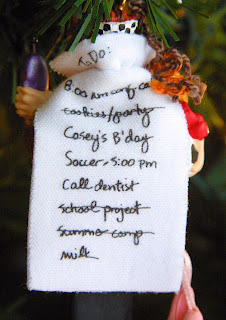 To Do:
8:00 am conf ca
cookies/party
Casey's B'day
Soccer - 5:00 pm
Call dentist
school project
summer camp
milk